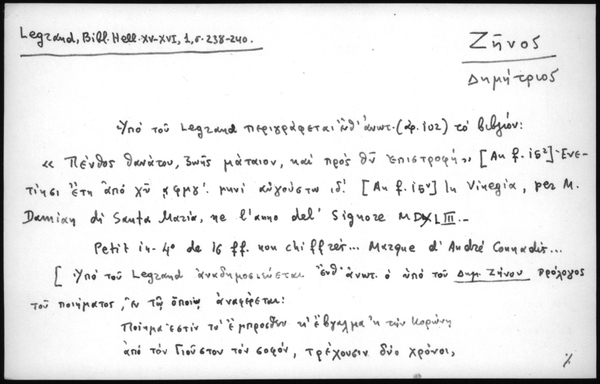 Legrand, Bibl. Hell. XV-XVI, 1, σ. 238-240.
Ζῆνος
Δημήτριος
Ὑπὸ τοῦ Legrand περιγράφεται ἔνθ' ἀνωτ. (ἀρ. 102) τὸ βιβλίον:
« Πένθος θανάτου, ζωῆς μάταιον, καὶ πρὸς θν̃ ἐπιστροφή » [Au f. 15²] Ἐνε-
τίησι ἔτη ἀπὸ χῦ αφμγ'. μηνὶ αὐγούστω ιδ'. [Au f. 15ᵛ] In Vinegia, per M.
Damian di Santa Maria, ne l'anno del' Signore MDXLIII.-
Petit in-4° de 16 ff. non chiffrés... Marque d'André Counadis...
[ Ὑπὸ τοῦ Legrand ἀναδημοσιεύεται ἔνθ' ἀνωτ. ὁ ὑπὸ τοῦ Δημ. Ζήνου πρόλογος
τοῦ ποιήματος, ἐν τῷ ὁποίῳ ἀναφέρεται:
Ποίημα ἐστὶν τὸ ἔμπροσθεν κ' ἔβγαλμα 'κ τὴν Κορώνη
ἀπὸ τὸν Γιοῦστον τὸν σοφόν, τρέχουσιν δύο χρόνοι,